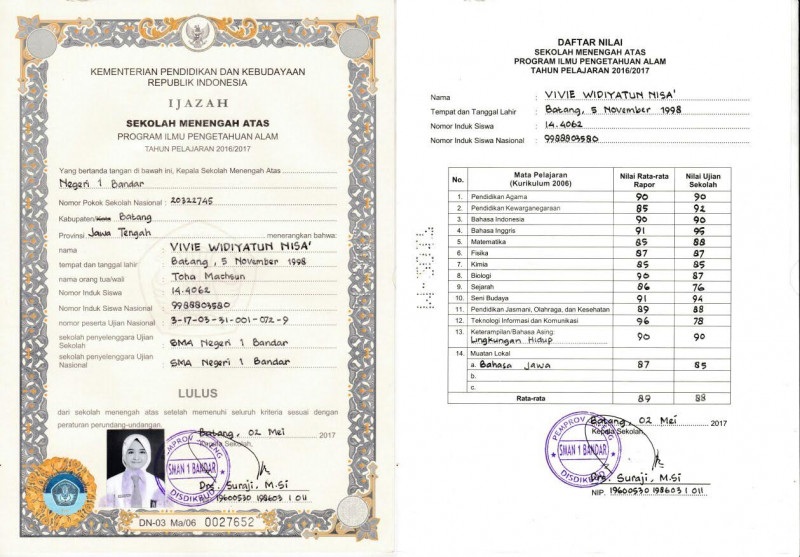 KEMENTERIAN PENDIDIKAN DAN KEBUDAYAAN
REPUBLIK INDONESIA
IJAZAH
SEKOLAH MENENGAH ATAS
PROGRAM ILMU PENGETAHUAN ALAM
TAHUN PELAJARAN 2016/2017
Yang bertanda tangan di bawah ini, Kepala Sekolah Menengah Atas
Negeri 1 Bandar
Nomor Pokok Sekolah Nasional : 20322745
Kabupaten/Kota Batang
Provinsi Jawa Tengah menerangkan bahwa:
nama : VIVIE WIDIYATUN NISA'
tempat dan tanggal lahir : Batang, 5 November 1998
nama orang tua/wali : Toha Machsun
Nomor Induk Siswa : 14.4062
Nomor Induk Siswa Nasional : 9988803580
nomor peserta Ujian Nasional : 3-17-03-31-001-072-9
sekolah penyelenggara Ujian
Sekolah : SMA Negeri 1 Bandar
sekolah penyelenggara Ujian
Nasional : SMA Negeri 1 Bandar
LULUS
dari sekolah menengah atas setelah memenuhi seluruh kriteria sesuai dengan
peraturan perundang-undangan.
Batang, 02 Mei 2017
Kepala Sekolah,
PEMPROV JATENG
SMAN 1 BANDAR
DISDIKBUD
Drs. Suraji, M.Si
19600530 198603 1 011
DN-03 Ma/06 0027652
DAFTAR NILAI
SEKOLAH MENENGAH ATAS
PROGRAM ILMU PENGETAHUAN ALAM
TAHUN PELAJARAN 2016/2017
Nama : VIVIE WIDIYATUN NISA'
Tempat dan Tanggal Lahir : Batang, 5 November 1998
Nomor Induk Siswa : 14.4062
Nomor Induk Siswa Nasional : 9988803580
No. Mata Pelajaran (Kurikulum 2006) Nilai Rata-rata Rapor Nilai Ujian Sekolah
1. Pendidikan Agama 90 90
2. Pendidikan Kewarganegaraan 85 92
3. Bahasa Indonesia 90 90
4. Bahasa Inggris 91 95
5. Matematika 85 88
6. Fisika 87 87
7. Kimia 85 85
8. Biologi 90 87
9. Sejarah 86 76
10. Seni Budaya 91 94
11. Pendidikan Jasmani, Olahraga, dan Kesehatan 89 88
12. Teknologi Informasi dan Komunikasi 96 78
13. Keterampilan/Bahasa Asing:
Lingkungan Hidup 90 90
14. Muatan Lokal
a. Bahasa Jawa 87 85
b.
c.
Rata-rata 89 88
Batang, 02 Mei 2017
Kepala Sekolah,
PEMPROV JATENG
SMAN 1 BANDAR
DISDIKBUD
Drs. Suraji, M.Si
NIP. 19600530 198603 1 011